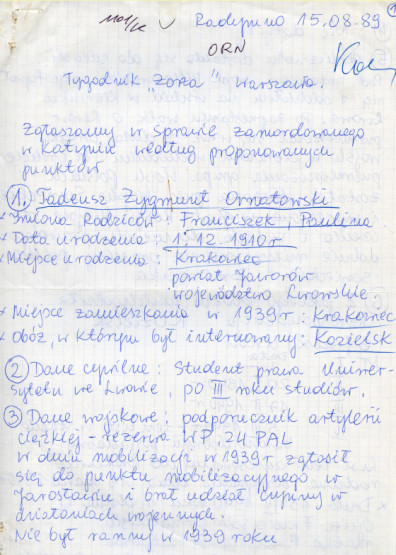 Radymno 15.08.89 1
ORN
Tygodnik "Zorza" Warszawa.
Zgłaszamy w sprawie zamordowanego
w Katyniu według proponowanych
punktów
1. Tadeusz Zygmunt Ornatowski
x Imiona Rodziców: Franciszek, Paulina
x Data urodzenia 1.12.1910r
x Miejsce urodzenia: Krakowiec
powiat Jaworów
województwo Lwowskie.
x Miejsce zamieszkania w 1939r: Krakowiec
x Obóz, w którym był internowany: Kozielsk
2 Dane cywilne: Student prawa Uniwer-
sytetu we Lwowie, po III roku studiów.
3 Dane wojskowe: podporucznik artylerii
ciężkiej - rezerwa WP, 24 PAL
w dniu mobilizacji w 1939r zgłosił
się do punktu mobilizacyjnego w
Jarosławiu i brał udział czynny w
działaniach wojennych.
Nie był ranny w 1939 roku